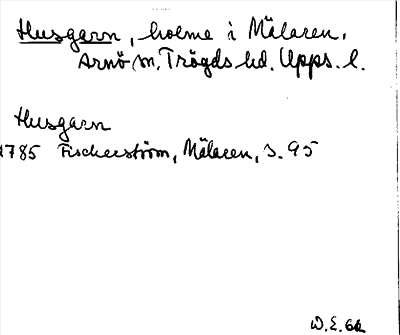 Husgarn, holme i Mälaren,
Arnö sn. Trögds hd. Upps. l.
Husgarn
1785 Fischerström, Mälaren, s. 95
W.E. 62